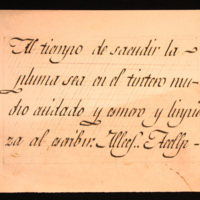 Al tiempo de sacudir la
pluma sea en el tintero mu-
cho cuidado y esmero y limpie
za al escribir.